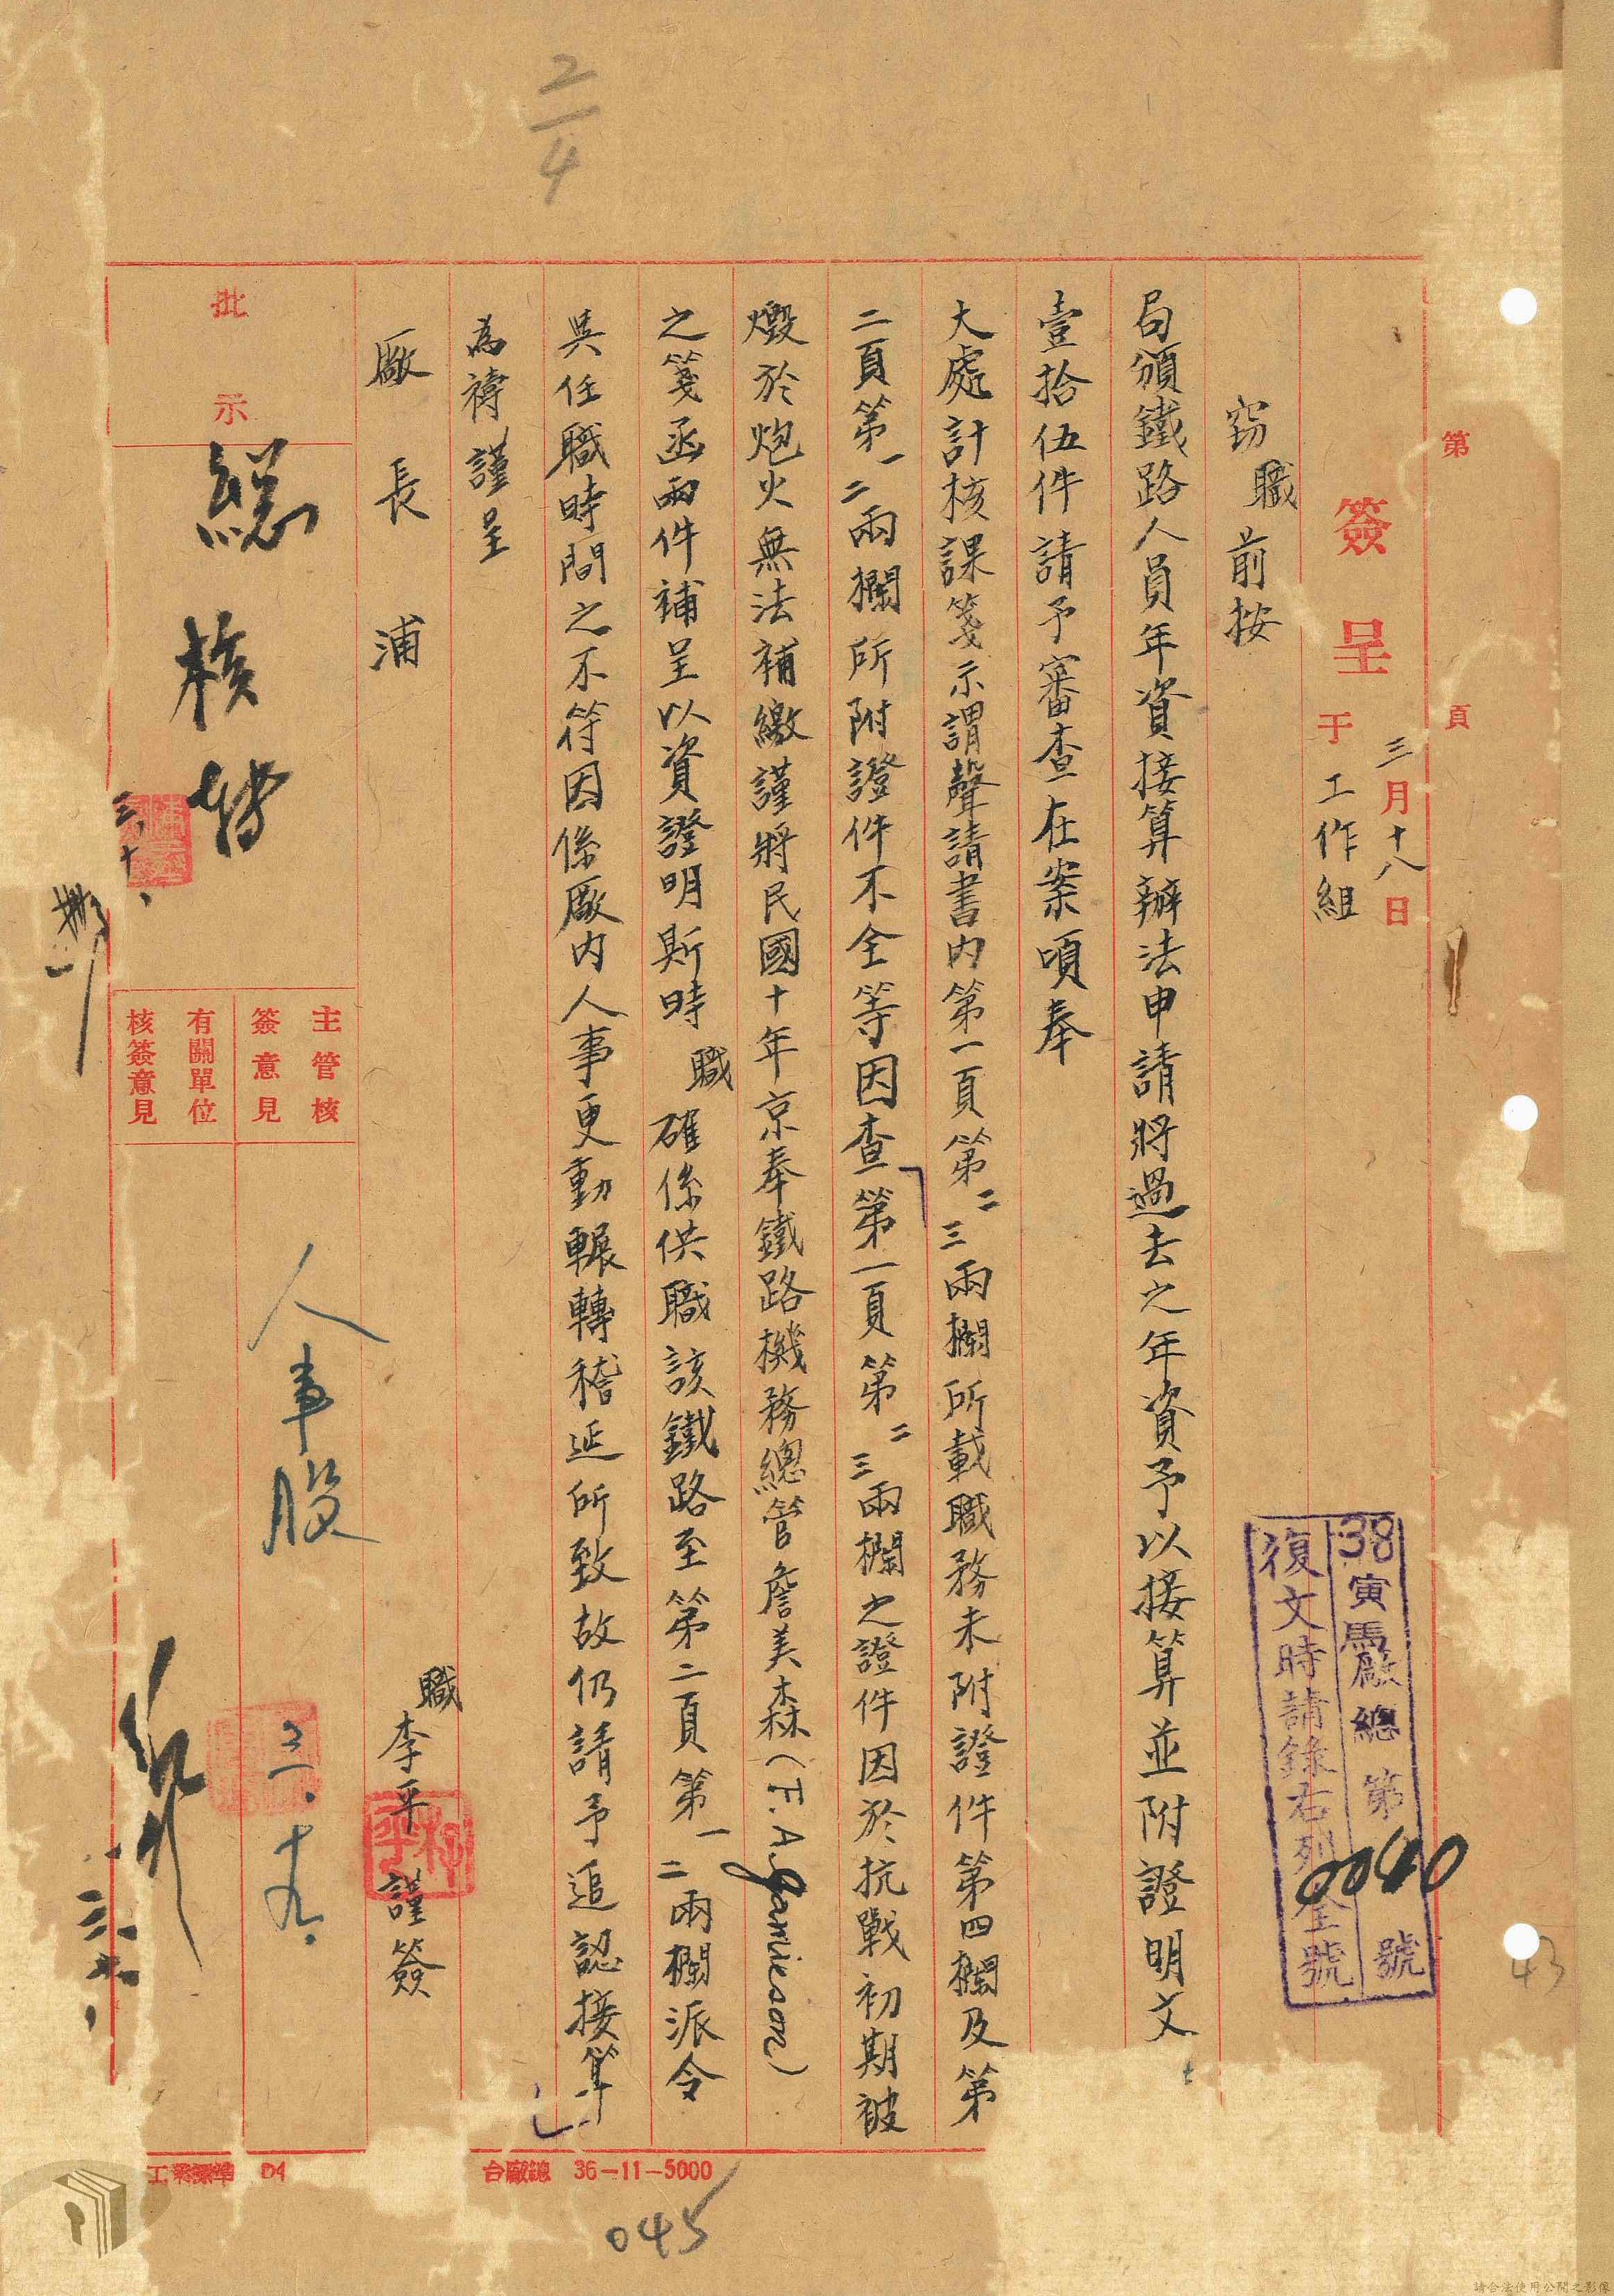 2/4
第 頁
三月十八日
簽呈 于工作組
竊職前按
局頒鐵路人員年資接算辦法申請將過去之年資予以接算並附證明文
壹拾伍件請予審查在案頃奉
大處計核課箋示謂聲請書內第一頁第二三兩欄所載職務未附證件第四欄及第
二頁第一二兩欄所附證件不全等因查第一頁第二三兩欄之證件因於抗戰初期被
燬於炮火無法補繳謹將民國十年京奉鐵路機務總管詹美森(F.A.Jamieson)
之箋函兩件補呈以資證明斯時職確係供職該鐵路至第二頁第一二兩欄派令
與任職時間之不符因係廠內人事更動輾轉稽延所致故仍請予追認接算
為禱謹呈
廠長 浦
職李平謹簽
38寅馬廠總第0040號
復文時請錄右列全號
批示
總核轉
三、十、
主管核
簽意見
有關單位
核簽意見
人事股
三.十九.
工業標準 D4
台廠總 36-11-5000
045
43
請合法使用公開之影像